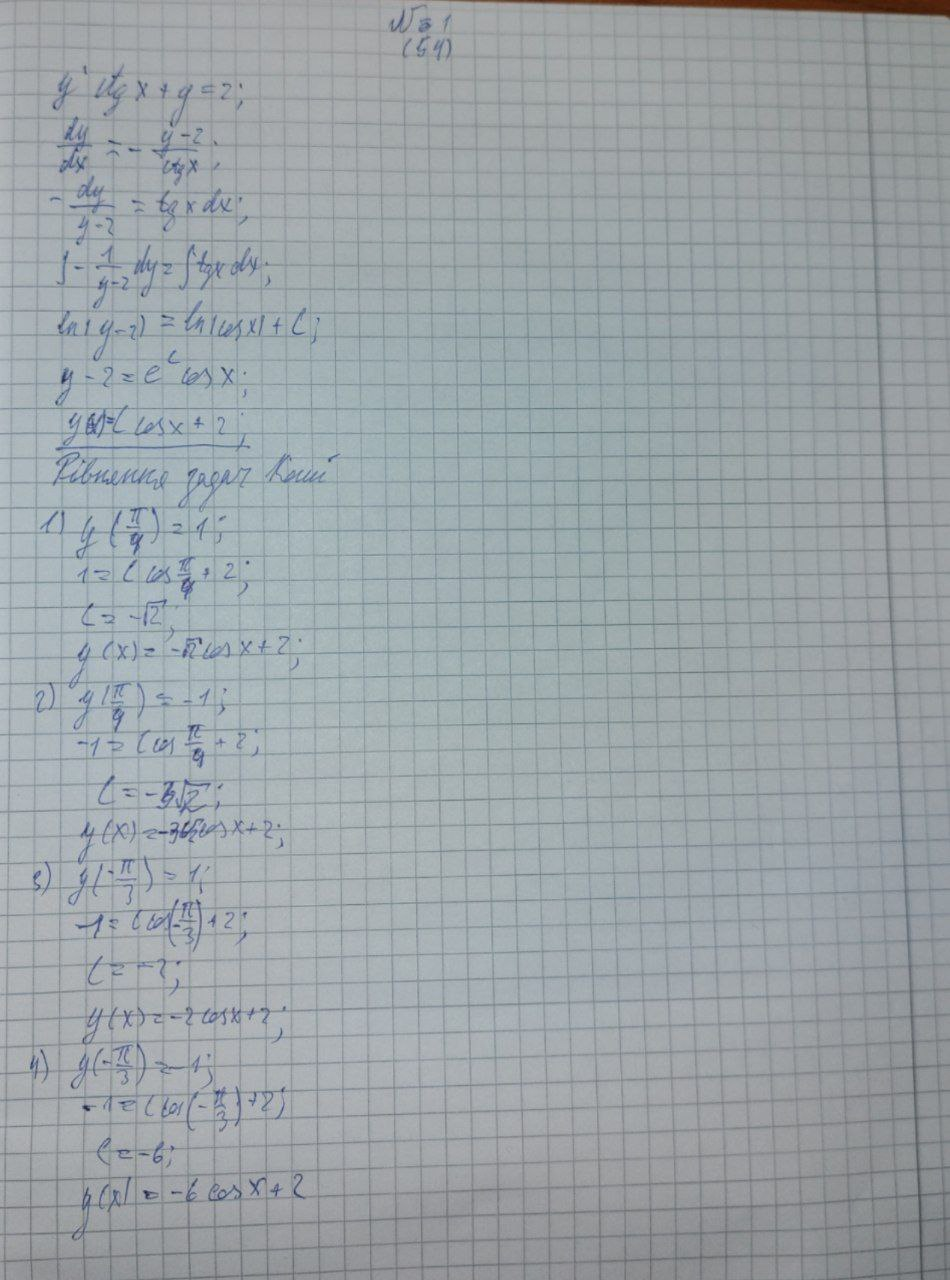 № 1
(54)
y' ctg x + y = 2;
dy/dx = - (y-2)/(ctg x);
- dy/(y-2) = tg x dx;
∫ - 1/(y-2) dy = ∫ tg x dx;
ln|y-2| = ln|cos x| + C;
y - 2 = e^C cos x;
y(x) = C cos x + 2;
Рівняння задач Коші
1) y(π/4) = 1;
1 = C cos π/4 + 2;
C = -√2;
y(x) = -√2 cos x + 2;
2) y(π/4) = -1;
-1 = C cos π/4 + 2;
C = -3√2;
y(x) = -3√2 cos x + 2;
3) y(-π/3) = 1;
-1 = C cos(-π/3) + 2;
C = -2;
y(x) = -2 cos x + 2;
4) y(-π/3) = -1;
-1 = C cos(-π/3) + 2;
C = -6;
y(x) = -6 cos x + 2